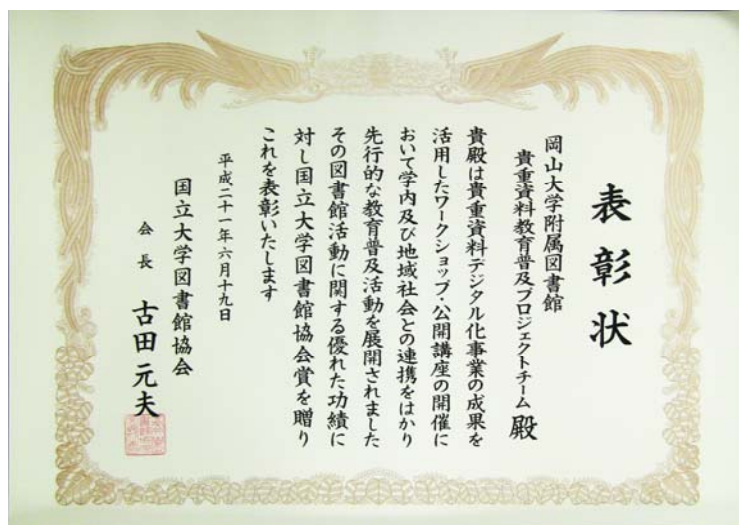 表彰状
岡山大学附属図書館
貴重資料教育普及プロジェクトチーム 殿
貴殿は貴重資料デジタル化事業の成果を
活用したワークショップ・公開講座の開催に
おいて学内及び地域社会との連携をはかり
先行的な教育普及活動を展開されました
その図書館活動に関する優れた功績に
対し国立大学図書館協会賞を贈り
これを表彰いたします
平成二十一年六月十九日
国立大学図書館協会
会長 古田元夫